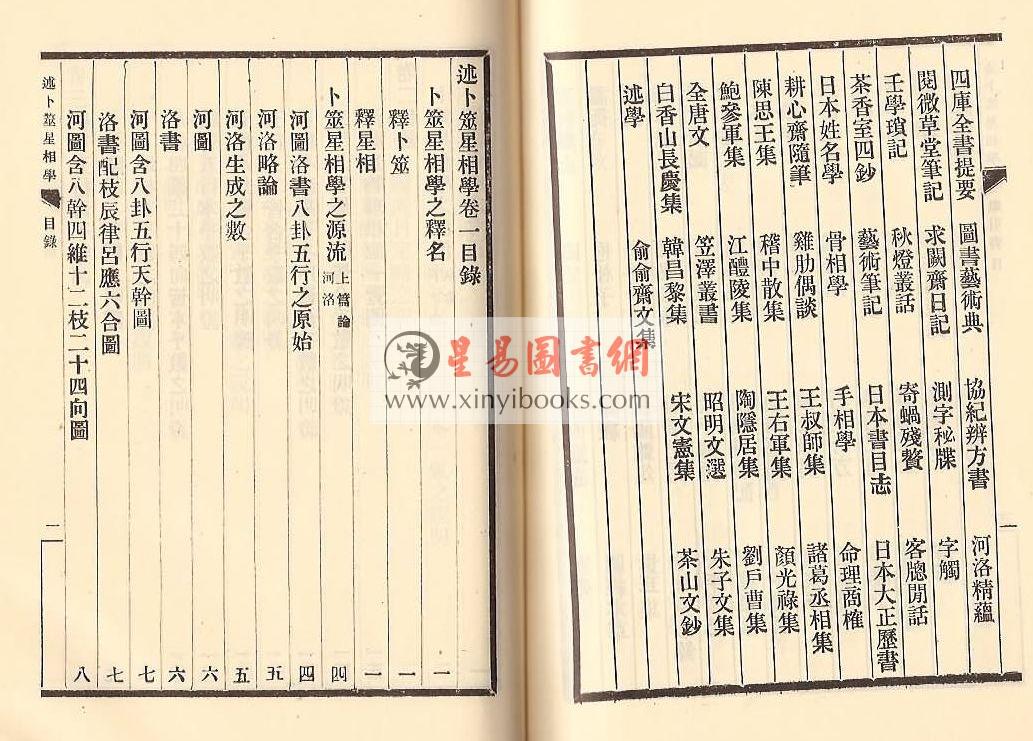 四庫全書提要 圖書藝術典 協紀辨方書 河洛精蘊
閱微草堂筆記 求闕齋日記 測字秘牒 字觸
壬學瑣記 秋燈叢話 寄蝸殘贅 客牕閒話
茶香室四鈔 藝術筆記 日本書目志 日本大正歷書
日本姓名學 骨相學 手相學 命理商榷
耕心齋隨筆 雞肋偶談 王叔師集 諸葛丞相集
陳思王集 稽中散集 王右軍集 顏光祿集
鮑參軍集 江醴陵集 陶隱居集 劉戶曹集
全唐文 笠澤叢書 昭明文選 朱子文集
白香山長慶集 韓昌黎集 宋文憲集 茶山文鈔
述學 俞俞齋文集
一
述卜筮星相學卷一目錄
卜筮星相學之釋名 一
釋卜筮 一
釋星相 一
卜筮星相學之源流 上篇論河洛 四
河圖洛書八卦五行之原始 四
河洛略論 五
河洛生成之數 五
河圖 六
洛書 六
河圖含八卦五行天幹圖 七
洛書配枝辰律呂應六合圖 七
河圖含八幹四維十二枝二十四向圖 八
述卜筮星相學 目錄 一
星易圖書網
www.xinyibooks.com